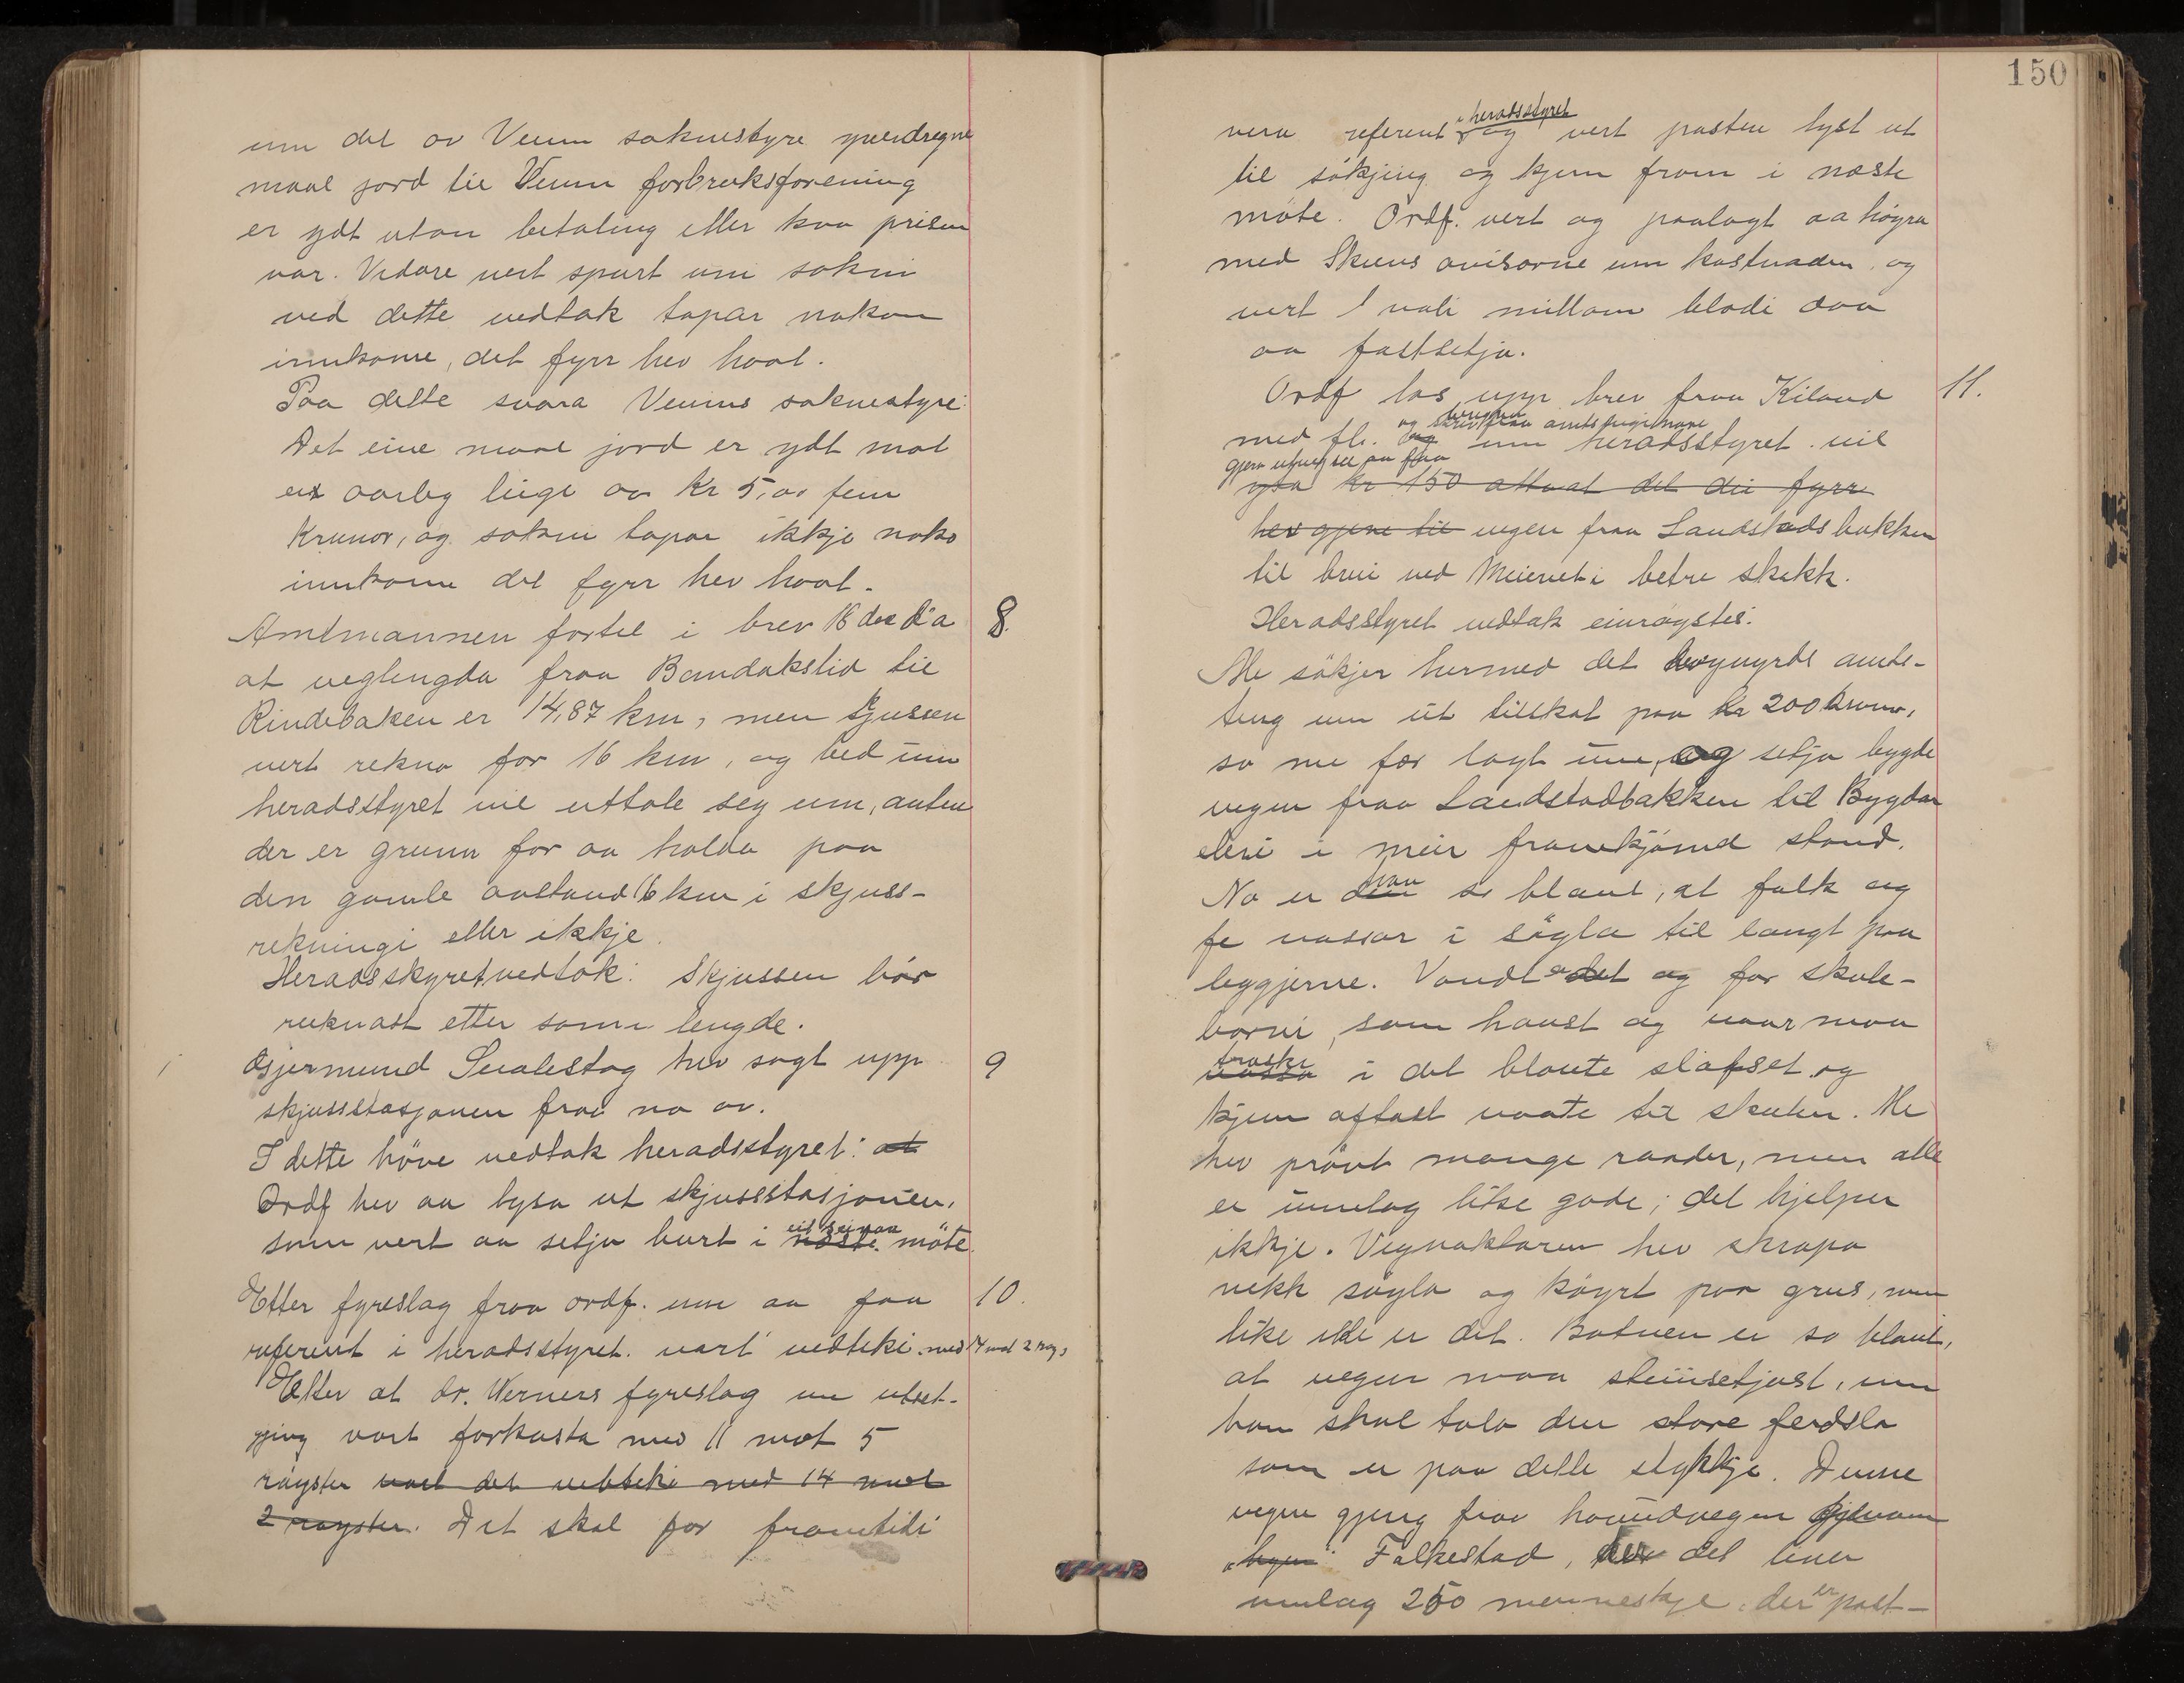 um det av Veum soknestyre
maal jord til Veum forbruksforening
er ydt utan betaling eller kva prisen
var. Vidare vert spurt um sokni
ved dette vedtak tapar nokon
innkome, det fyrr hev havt.
Paa dette svara Veums soknestyre:
Det eine maal jord er ydt mot
ei aarleg leige av Kr 5,00 fem
Kronor, og sokni tapar ikkje noko
innkome det fyrr hev havt.
Amtmannen fortel i brev 16 des d'a 8.
at veglengda fraa Bandakslid til
Rindebaken er 14,87 km, men skjussen
vert rekna for 16 km, og bed um
heradsstyret vil uttale seg um, anten
der er grunn for aa halda paa
den gamle avstand 16 km i skjuss-
rekningi eller ikkje.
Heradsskyret vedtok: Skjussen bör
reknast etter sann lengde.
Gjermund Sualestog hev sagt upp 9
skjusstasjonen fraa no av.
I dette höve vedtok heradsstyret: at
Ordf hev aa lysa ut skjussstasjonen,
som vert aa setja burt i næste møte.
eit seinare
Etter fyreslag fraa ordf. um aa faa 10.
referent i heradsstyret. vart vedteki. med 14 mot 2 røys
Etter at dr. Werners fyreslag um utset-
jing vart forkasta med 11 mot 5
röyster vart det vedteke med 14 mot
2 røyster. Det skal for framtidi
150
i heradsstyret
vera referent og vert posten lyst ut
til sökjing og kjem fram i næste
möte. Ordf. vert og paalagt aa höyra
med Skiens avisorne um kostnaden, og
vert / vali millom bladi daa
aa fastsetja.
Ordf las upp brev fraa Kiland 11.
med fl. og um heradsstyret vil
gjera utveg til aa faa
yta kr 150 attaat det dei fyrr
hev gjeve til vegen fraa Landstadsbakken
til brui ved Meieriet i betre skikk.
Heradsstyret vedtok einröystes:
Me sökjer hermed det amts-
ting um eit tilskot paa kr 200 kronor,
so me fær lagt um, og setja bygde
vegen fraa Landstadbakken til Bygdar
elvi i meir framkjömd stand.
No er den han so blaut, at folk og
fe vassar i söyla til langt paa
leggjerne. Vondt er det og for skule-
borni, som haust og vaar maa
traska
vassa i det blaute slafset og
kjem oftast vaate til skulen. Me
hev prövt mange raader, men alle
er umlag like gode; det hjelper
ikkje. Vegvaktaren hev skrapa
vekk söyla og köyrt paa grus, men
like ille er det. Botnen er so blaut,
at vegen maa steinsetjast, um
han skal tola den store ferdsla
som er paa dette stykkje. Denne
vegen gjeng fraa hovudvegen gjenom
byen Falkestad, der det liver
umlag 250 menneskje. der er post-